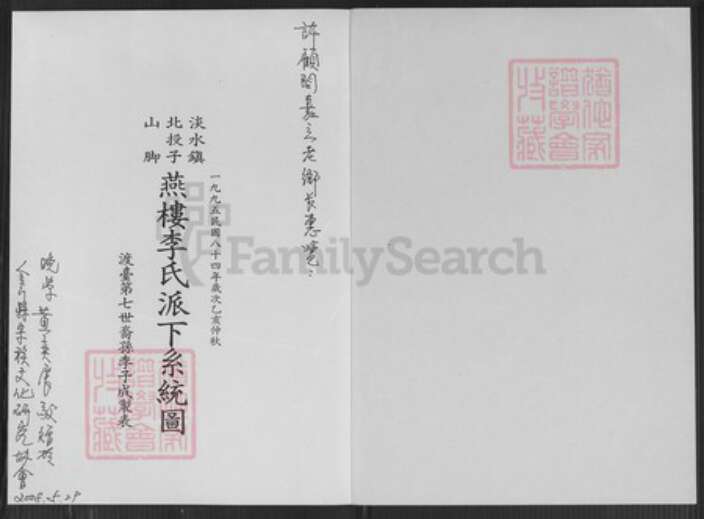 許顧問嘉立老鄉長惠覽：
一九九五民國八十四年歲次乙亥仲秋
淡水鎮
北投子
山腳
燕樓李氏派下系統圖
渡臺第七世裔孫李子成製表
晚學 黃奕展敬贈於
宗族文化研究協會
2008.5.29
FamilySearch
譜學會